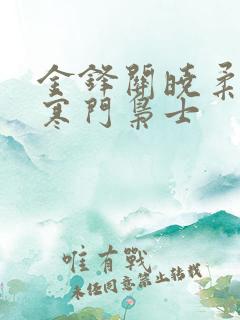 金鋒關曉柔
寒門梟士
唯有戰
未经同意禁止转载